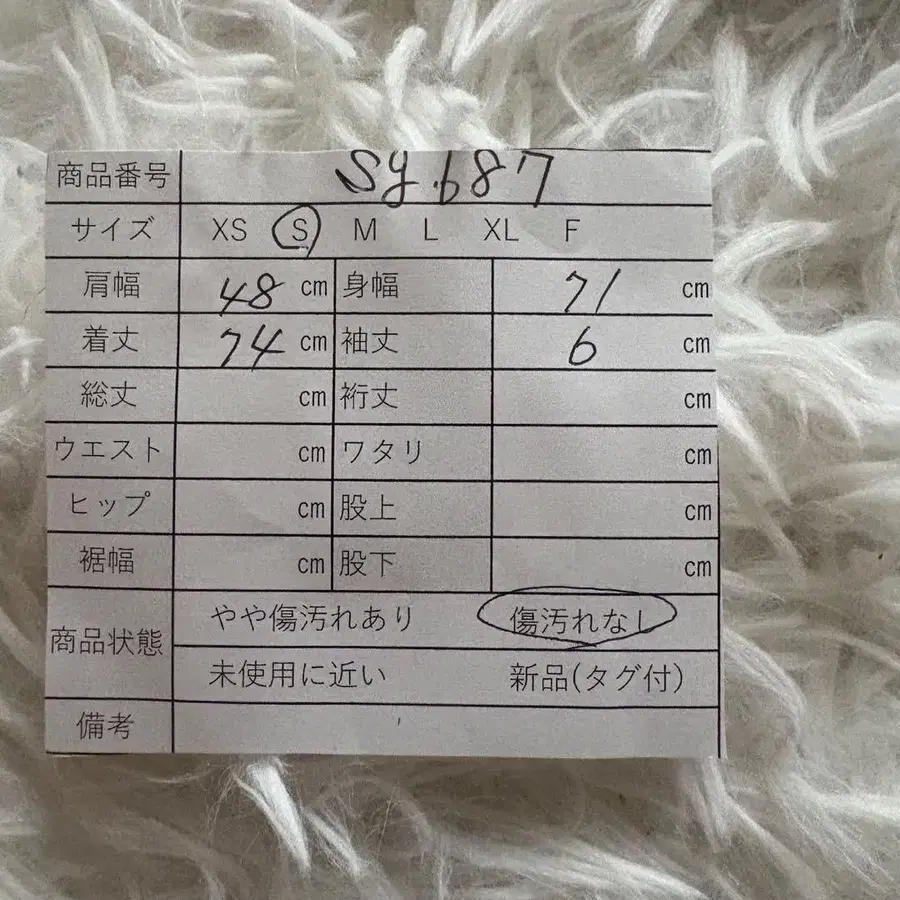 商品番号 SY.687
サイズ XS S M L XL F
肩幅 48 cm 身幅 71 cm
着丈 74 cm 袖丈 6 cm
総丈 cm 裄丈 cm
ウエスト cm ワタリ cm
ヒップ cm 股上 cm
裾幅 cm 股下 cm
商品状態 やや傷汚れあり 傷汚れなし
未使用に近い 新品(タグ付)
備考